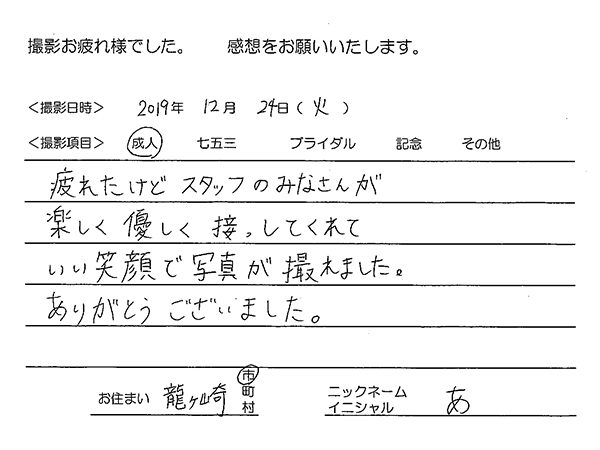 撮影お疲れ様でした。 感想をお願いいたします。
＜撮影日時＞ 2019年 12月 24日(火)
＜撮影項目＞ 成人 七五三 ブライダル 記念 その他
疲れたけど スタッフのみなさんが
楽しく 優しく 接っしてくれて
いい笑顔で写真が撮れました。
ありがとう ございました。
お住まい 龍ヶ崎 市町村 ニックネーム イニシャル あ